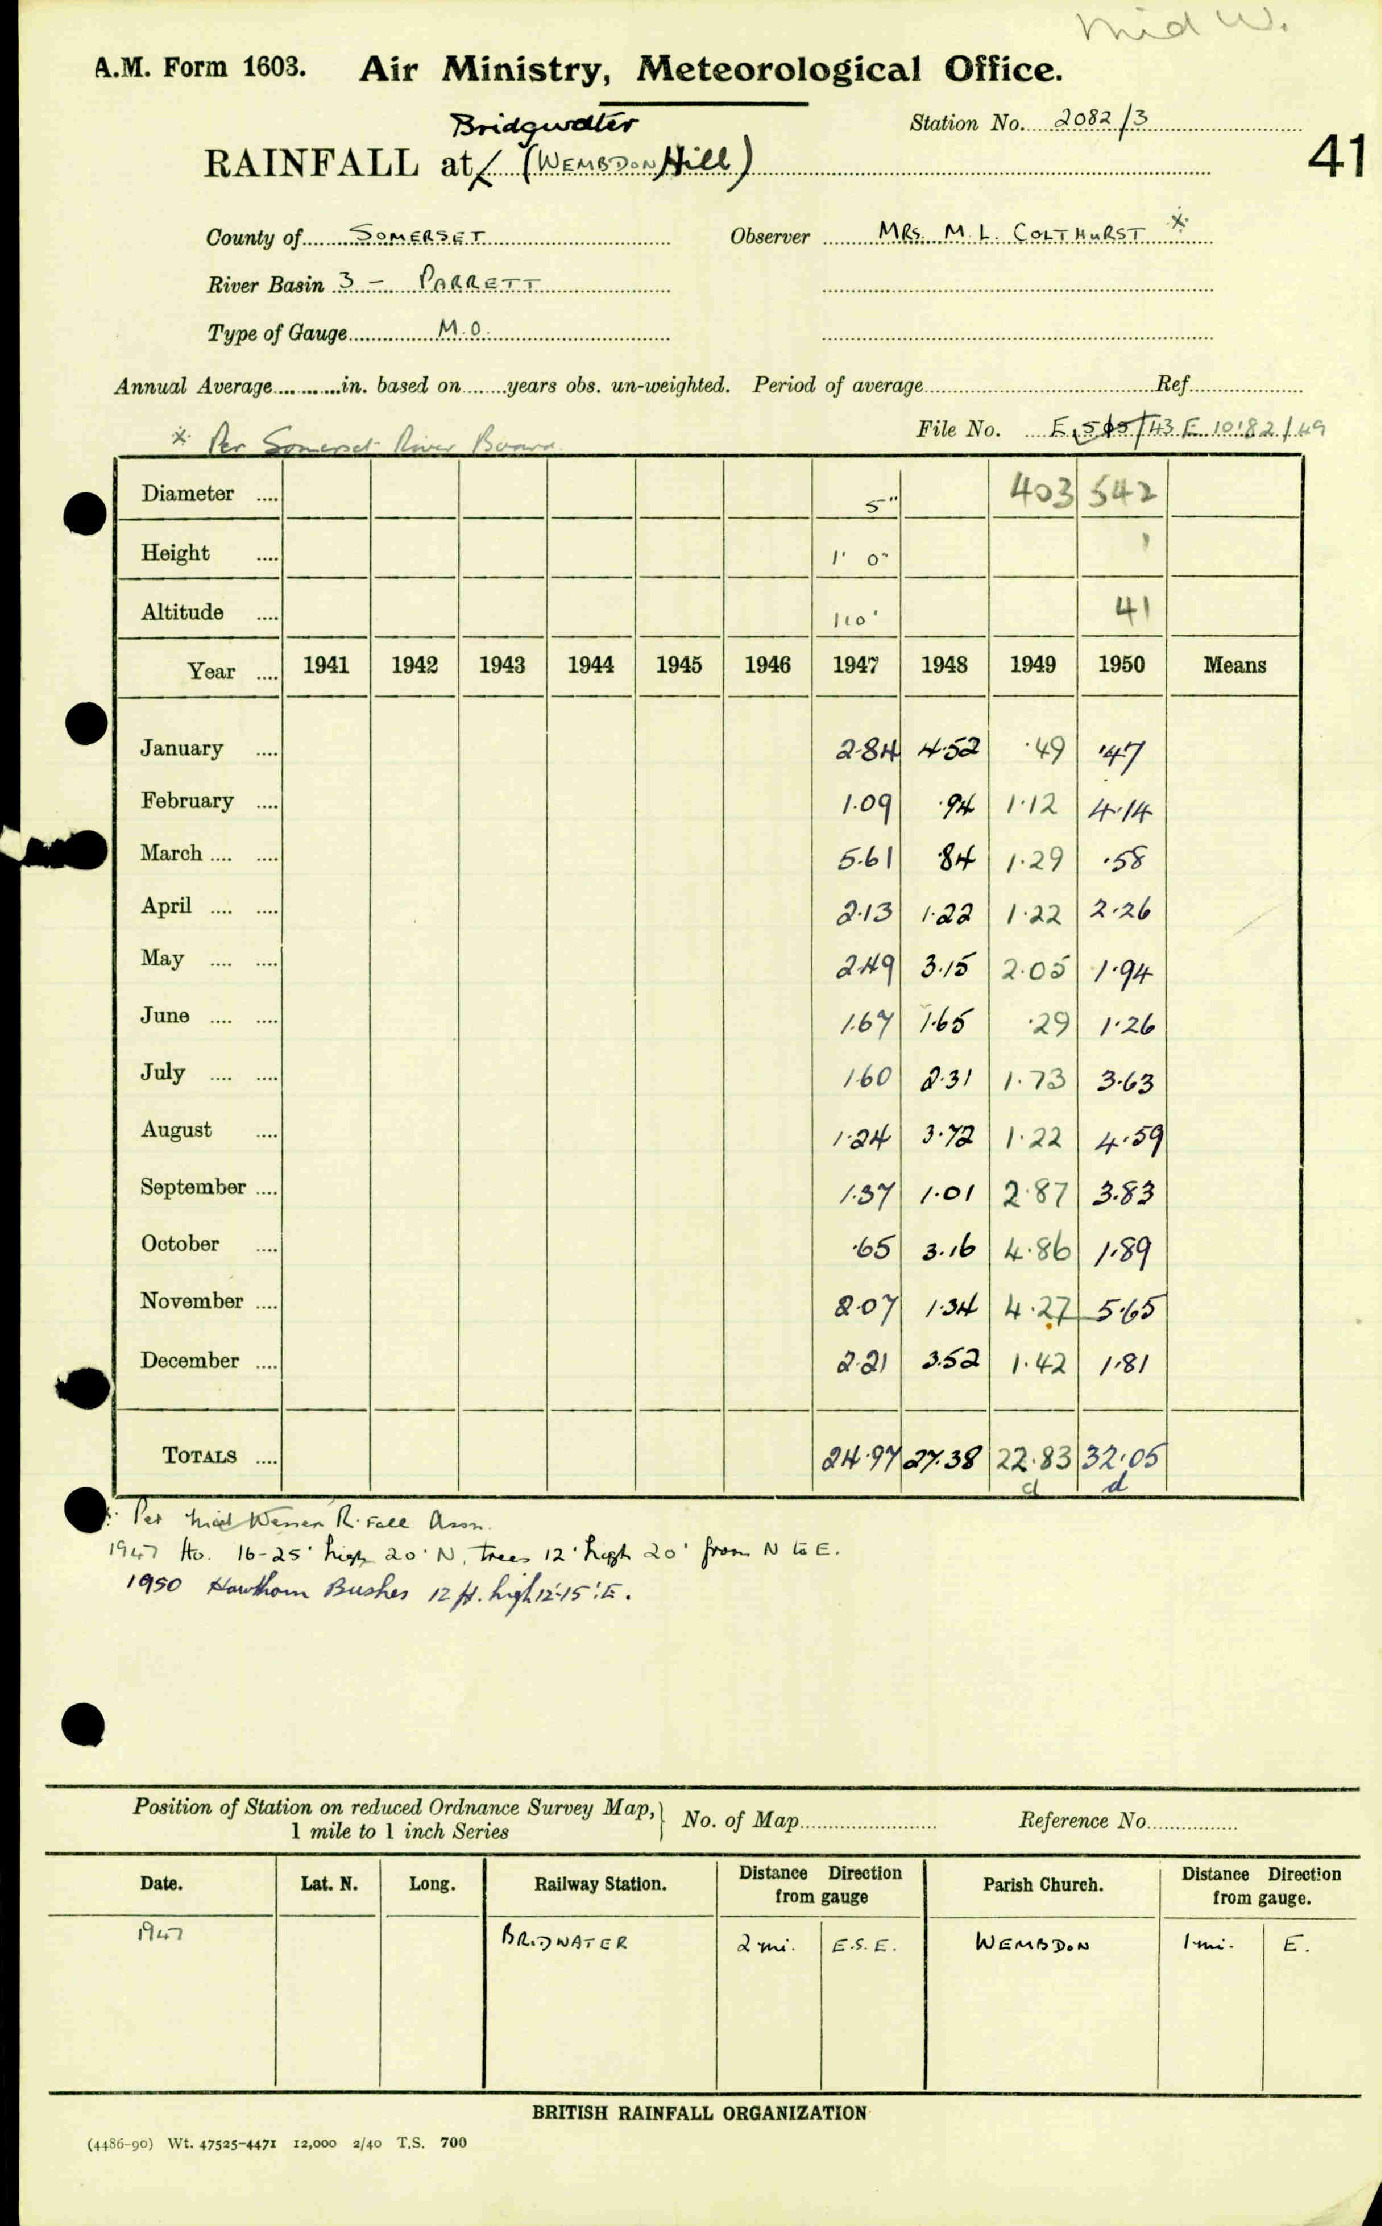 Mid W.
A.M. Form 1603. Air Ministry, Meteorological Office.
Bridgwater
Station No. 2082/3
41
RAINFALL at (WEMBDON Hill)
County of SOMERSET Observer MRS. M. L. COLTHURST *
River Basin 3 - PARRETT
Type of Gauge M.O.
Annual Average in. based on years obs. un-weighted. Period of average Ref.
File No. E 505/43 E 10182/49
* Per Somerset River Board
Diameter .... 5" 403 542
Height .... 1' 0" 1
Altitude .... 110' 41
Year .... 1941 1942 1943 1944 1945 1946 1947 1948 1949 1950 Means
January .... 2.84 4.52 .49 .47
February .... 1.09 .94 1.12 4.14
March .... .... 5.61 .84 1.29 .58
April .... .... 2.13 1.22 1.22 2.26
May .... .... 2.49 3.15 2.05 1.94
June .... .... 1.67 1.65 .29 1.26
July .... .... 1.60 2.31 1.73 3.63
August .... 1.24 3.72 1.22 4.59
September .... 1.37 1.01 2.87 3.83
October .... .65 3.16 4.86 1.89
November .... 2.07 1.34 4.27 5.65
December .... 2.21 3.52 1.42 1.81
TOTALS .... 24.97 27.38 22.83 32.05
d d
* Per Mid Wessex R. Fall Assn.
1947 Ho. 16-25' high 20' N, trees 12' high 20' from N to E.
1950 Hawthorn Bushes 12 ft. high 12'-15' E.
Position of Station on reduced Ordnance Survey Map, No. of Map Reference No.
1 mile to 1 inch Series
Date. Lat. N. Long. Railway Station. Distance Direction from gauge Parish Church. Distance Direction from gauge.
1947 BRIDWATER 2 mi. E.S.E. WEMBDON 1 mi. E.
BRITISH RAINFALL ORGANIZATION
(4486-90) Wt. 47525-4471 12,000 2/40 T.S. 700